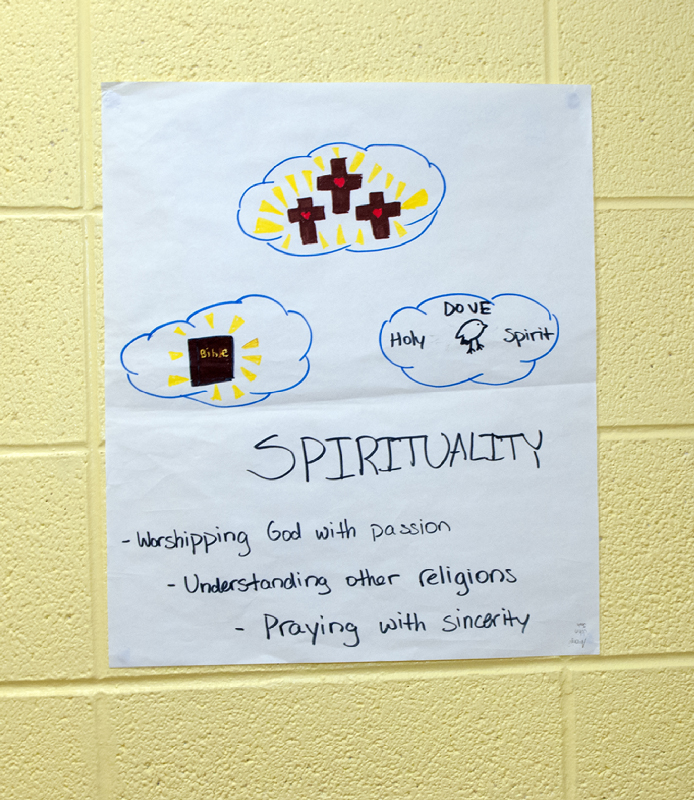 DOVE
Holy Spirit
Bible
SPIRITUALITY
- Worshipping God with passion
- Understanding other religions
- Praying with sincerity